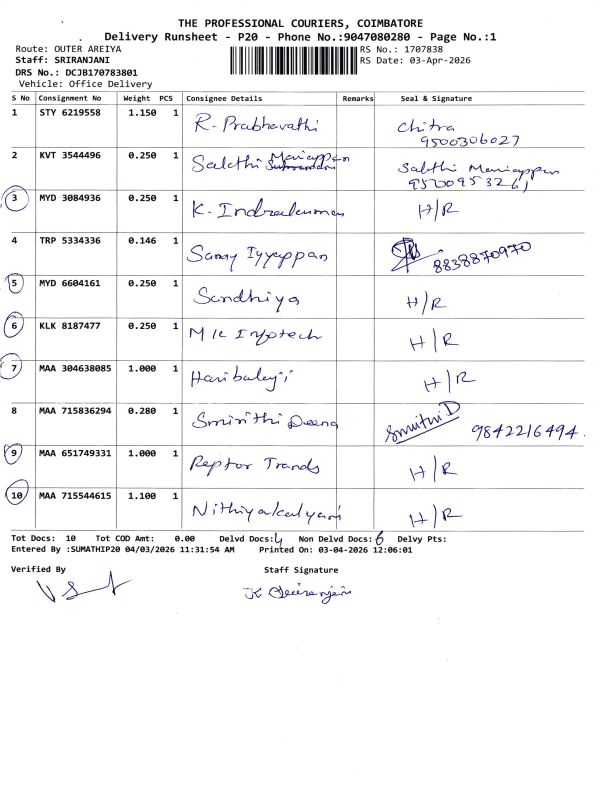 THE PROFESSIONAL COURIERS, COIMBATORE
Delivery Runsheet - P20 - Phone No.:9047080280 - Page No.:1
Route: OUTER AREIYA RS No.: 1707838
Staff: SRIRANJANI RS Date: 03-Apr-2026
DRS No.: DCJB170783801
Vehicle: Office Delivery
S No Consignment No Weight PCS Consignee Details Remarks Seal & Signature
1 STY 6219558 1.150 1 R. Prabhavathi Chitra
9500306027
2 KVT 3544496 0.250 1 Sakthi Mariappan Sakthi Mariappan
9500953261
3 MYD 3084936 0.250 1 K. Indrakumar H/R
4 TRP 5334336 0.146 1 Samy Iyyappan 8838870970
5 MYD 6604161 0.250 1 Sandhiya H/R
6 KLK 8187477 0.250 1 M K Infotech H/R
7 MAA 304638085 1.000 1 Haribalaji H/R
8 MAA 715836294 0.280 1 Smirithi Deena Smrithi D 9842216494.
9 MAA 651749331 1.000 1 Reptor Trands H/R
10 MAA 715544615 1.100 1 Nithiyakalyani H/R
Tot Docs: 10 Tot COD Amt: 0.00 Delvd Docs: 4 Non Delvd Docs: 6 Delvy Pts:
Entered By :SUMATHIP20 04/03/2026 11:31:54 AM Printed On: 03-04-2026 12:06:01
Verified By Staff Signature